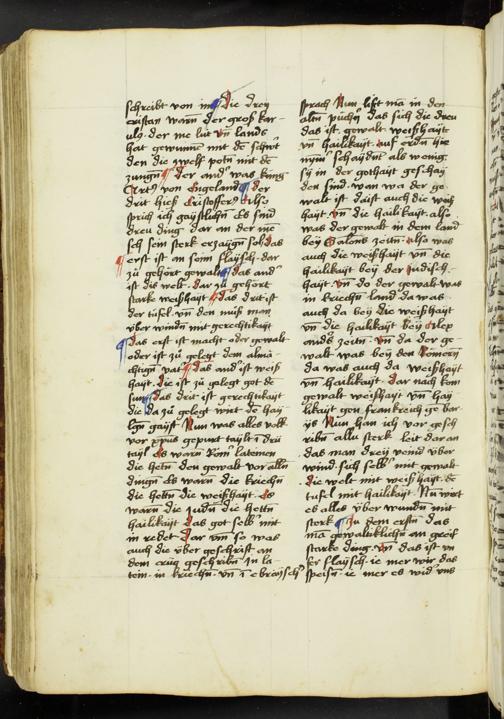 schreibt von im Die drey
cristan warn der groß kar-
ulꝰ der me lüt vn̄ lands
hat gewunnē mit dē schwt
den die zwelf potn̄ mit dē
zungn̄ der and̕ was küng
Art᷑ von Engeland der
drit hieß Cristoffer᷑ Also
sprich ich gaÿstlichn̄ Es sind
dreu ding dar an der me
sch sein sterk erzaign̄ sol das
erst ist an sein̄ flaÿsch dar
zů gehört gewalt das and̕
ist die welt dar zů gehört
starke weißhaÿt das drit ist
der tüfel vn̄ den můß man
über windn̄ mit gerechtikaÿt
das erst ist macht oder gewalt
oder ist zů gelegt dem almä
chtign̄ vat᷑ das and̕ ist weiß
haÿt die ist zů gelegt got dē
sun das drit ist gerechtikaÿt
die da zů gelegt wirt dē haÿ
lign̄ gaÿst Nun was alles volk
vor xp̄us gepurt taÿlt ī drü
taÿl Es warn Röm latemen
die hetn̄ den gewalt vor alln̄
dingn̄ Es warn die kriechn̄
die hettn̄ die weißhaÿt Es
warn̄ die Judn̄ die hettn̄
hailikaÿt das got selb᷑ mit
in redet Dar vm̄ so was
auch die über geschrift an
dem crütz geschribn̄ In la
tein in kriechn̄ vn̄ ī ebraÿsch
sprach Nun list mā in den
altn̄ püchn̄ das sich die dreu
das ist gewalt weißhaÿt
vn̄ hailikaÿt auf erdn̄ hie
schaÿdn̄t als wenig
sÿ in der gothaÿt geschaÿ
den sind wan wa der ge
walt ist da ist auch die weiß
haÿt vn̄ die hailikaÿt also
was der gewalt in dem land
beÿ Salons zeitn̄ also was
auch die weißhaÿt vn̄ die
hailikaÿt beÿ der Judisch
haÿt vn̄ do der gewalt was
in kriechn̄ land da was
auch da beÿ die weißhaÿt
vn̄ die hailikaÿt beÿ Alex
anders zeitn̄ vn̄ da der ge
walt was beÿ den Römern̄
da was auch da weißhaÿt
vn̄ hailikaÿt dar nach kom
gewalt weißhaÿt vn̄ haÿ
likaÿt gen frankreich ge
Nun han ich vor gesch
ribn̄ allū sterk leit dar an
das man dreÿ veind über
wind sich selb᷑ mit gewalt
die welt mit weißhaÿt dē
tüfel mit hailikaÿt Nū wirt
es alles über wundn̄ mit
sterk Zu dem erstn̄ das
mā gewaltiklichn̄ an greif
starke ding vn̄ das ist vn
ser flaÿsch ie mer wir das
speisn̄ ie mer es wid᷑ uns